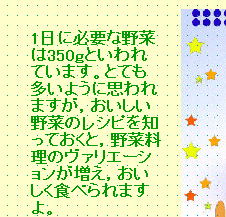 1日に必要な野菜
は350gといわれ
ています。とても
多いように思われ
ますが，おいしい
野菜のレシピを知
っておくと，野菜料
理のヴァリエーシ
ョンが増え，おい
しく食べられます
よ。